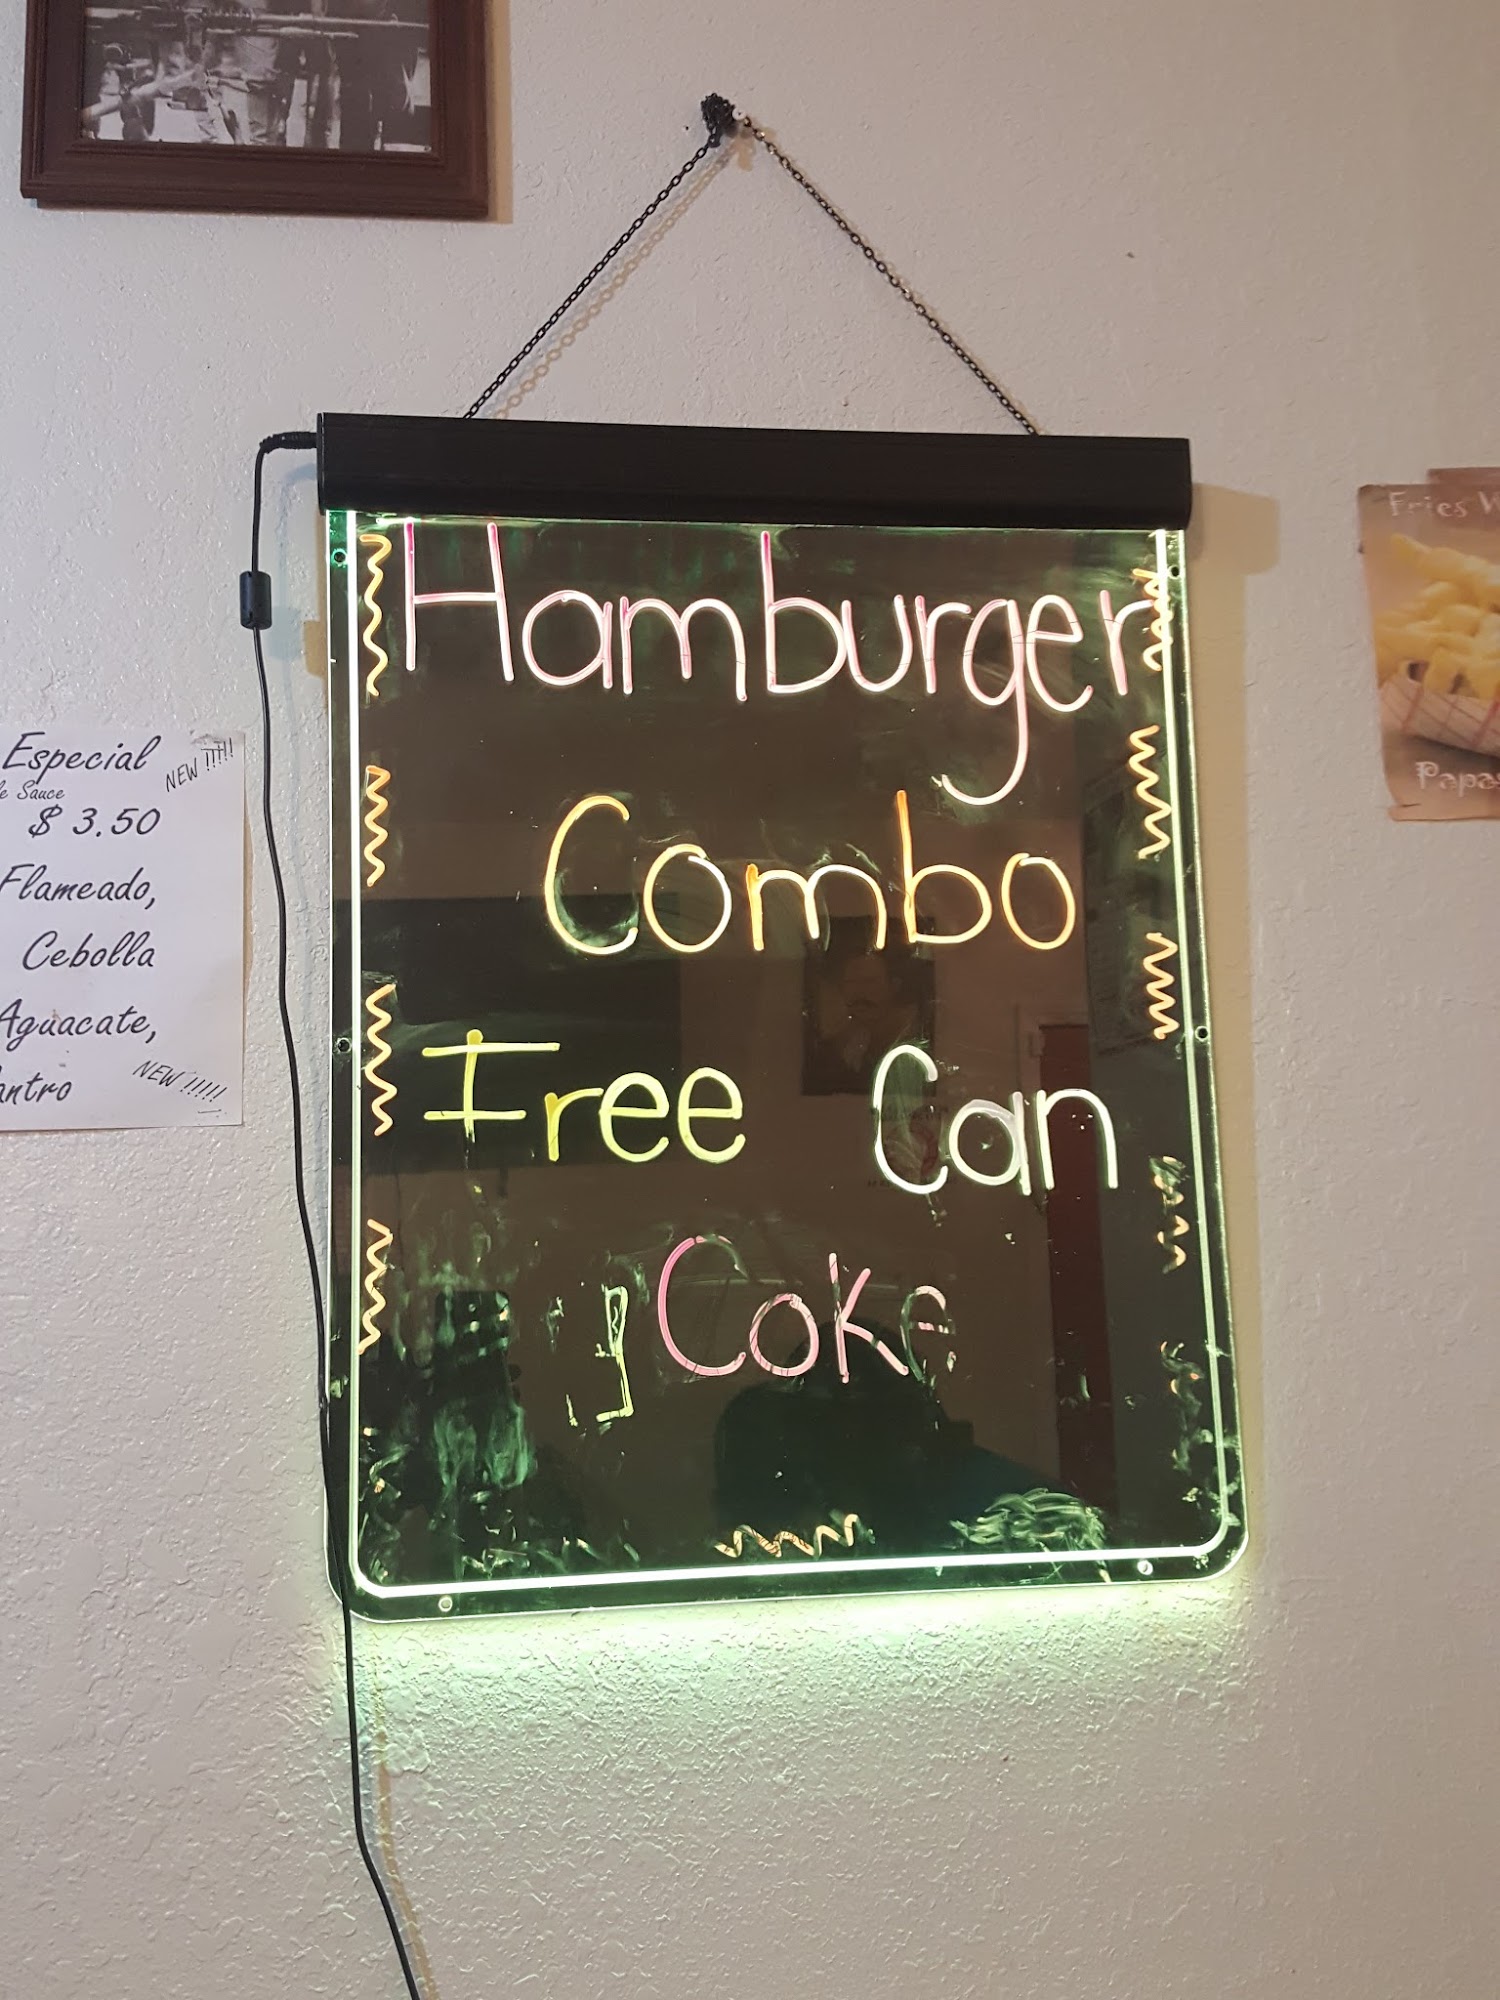 Hamburger
Combo
Free Can
Coke
Especial
NEW !!!!!
Sauce
$ 3.50
Flameado,
Cebolla
Aguacate,
NEW !!!!!
Fries